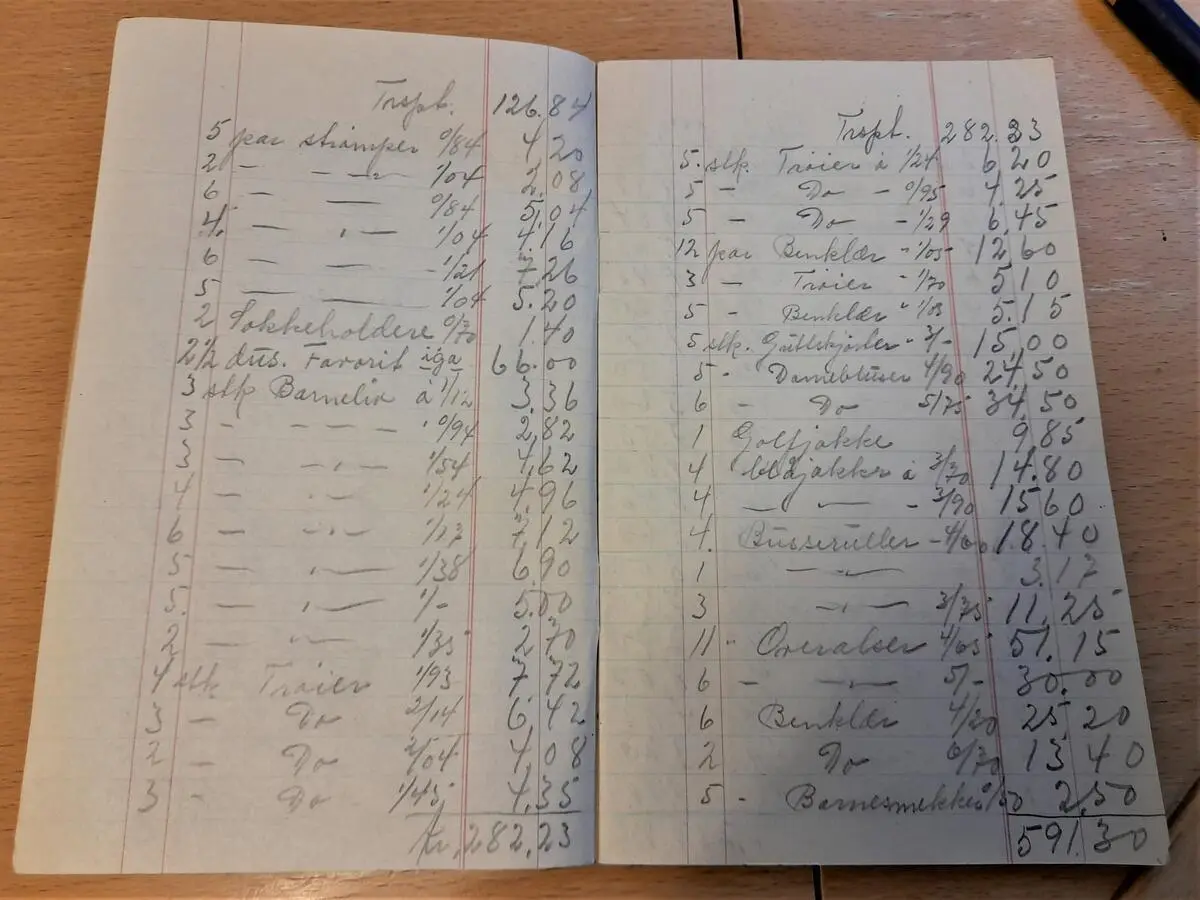 Trspt. 126.84
5 par strømper 0/84 4 20
2 - - - " - 1/04 2.08
6 - — 0/84 5.04
4. - — " — 1/04 4.16
6 - — - 1/21 7.26
5 - — 1/04 5.20
2 Sokkeholdere 0/70 1.40
2 1/2 dus. Favorit iga 66.00
3 stk Barneliv à 1/12 3.36
3 - - - - - " 0/94 2,82
3 - - " - 1/54 4,62
4 - - " - 1/24 4.96
6 — - " - 1/17 7,12
5 — " — 1/38 6.90
5. — " — 1/- 5.00
2 — " — 1/35 2 70
4 stk Trøier 1/93 7.72
3 - Do 2/14 6,42
2 - Do 2/04 4,08
3 - Do 1/45, 4,35
Kr. 282,23
Trspt. 282.23
5. stk. Trøier à 1/24 6 20
5 - Do - 0/95 4.25
5 - Do - 1/29 6.45
12 par Benklær - 1/05 12,60
3 - Trøier - 1/70 5 10
5 - Benklær " 1/03 5.15
5 stk. Guttekjoler - 3/- 15,00
5 - Damebluser 4/90 24,50
6 - Do 5/75 34,50
1 Golfjakke 9,85
4 blåjakker à 3/70 14.80
4 — " — - 3/90 15 60
4. Busseruller - 4/60 18.40
1 — " — 3.17
3 — " — 3/75 11,25
11 - Overalser 4/65 51.15
6 - — " — 5/- 30.00
6 Benklær 4/20 25 20
2 Do 6/70 13 40
5 - Barnesmekker 0/50 2,50
591.30